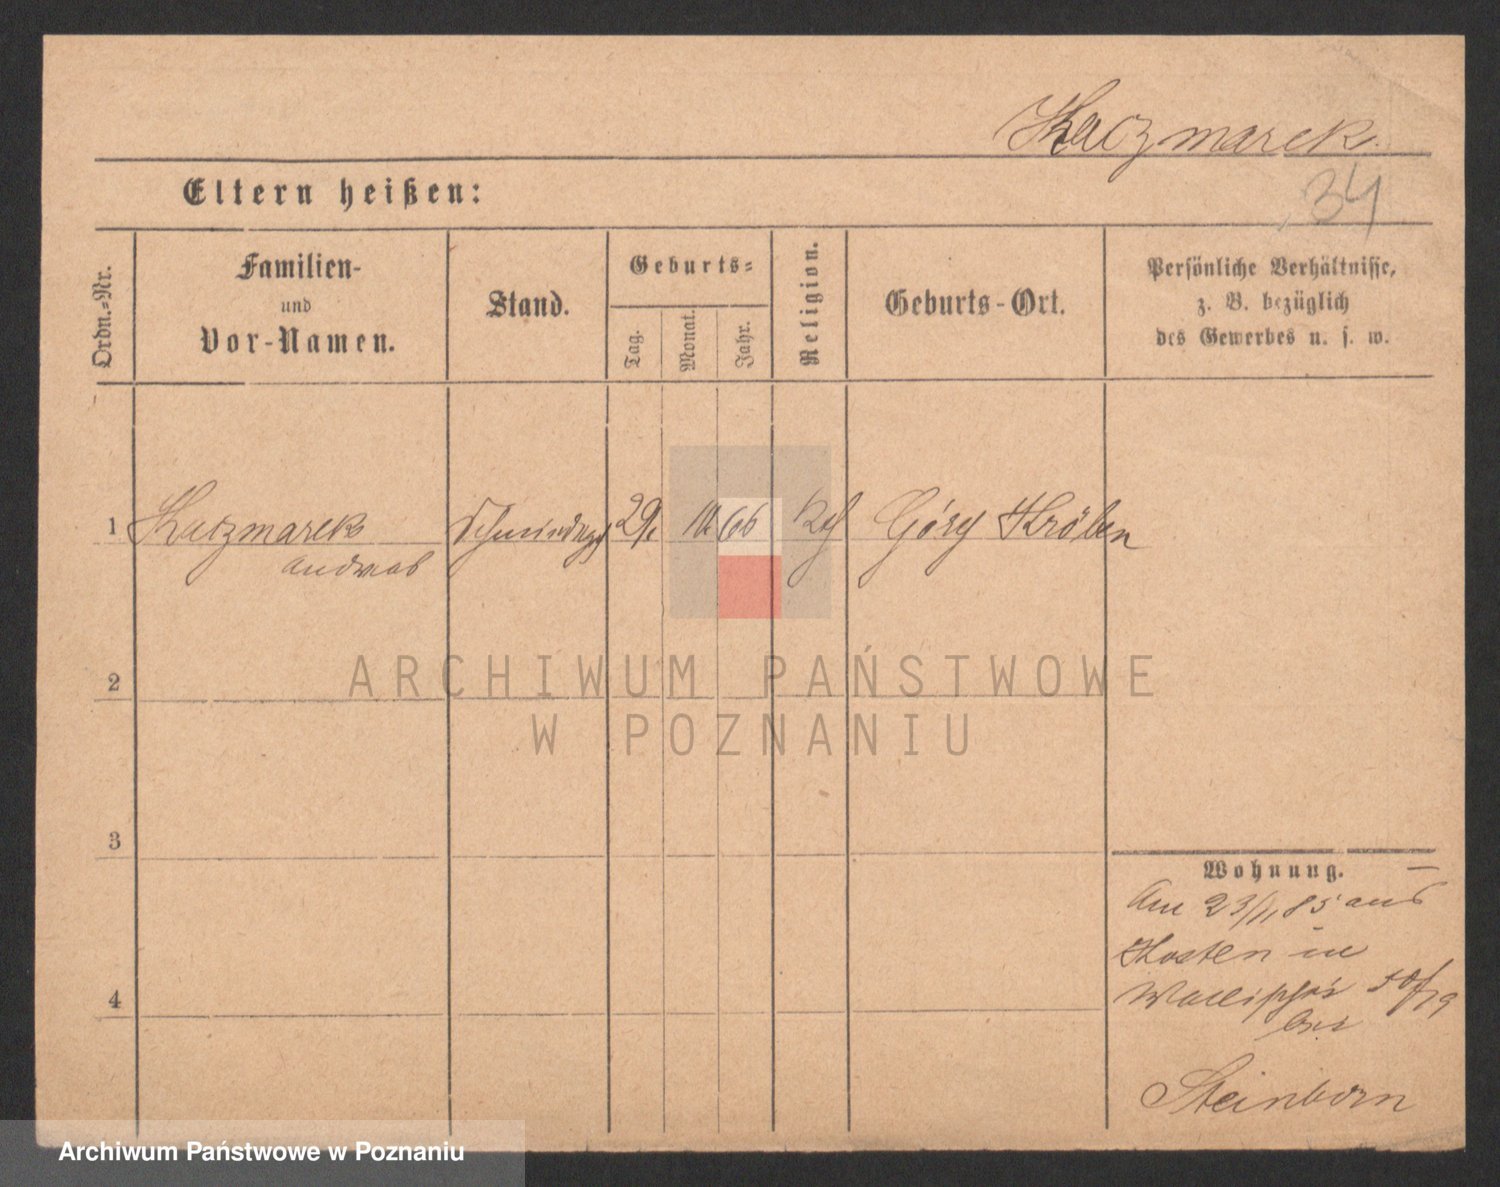 Kaczmarek
34
Eltern heißen:
Ordn.-Nr.
Familien-
und
Vor-Namen.
Stand.
Geburts-
Tag.
Monat.
Jahr.
Religion.
Geburts-Ort.
Persönliche Verhältnisse,
z. B. bezüglich
des Gewerbes u. s. w.
1 Kaczmarek 29 66 Góry Kröben
Andreas
ARCHIWUM PAŃSTWOWE
W POZNANIU
2
3
4
Wohnung.
Am 23/11 85 aus
Kosten in
Wallischei
bei
Steinborn
Archiwum Państwowe w Poznaniu